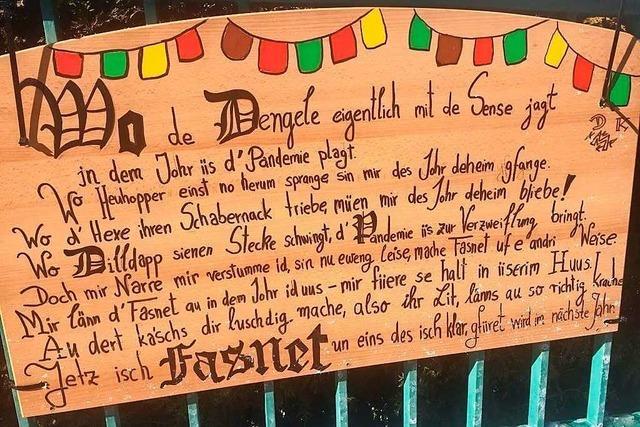 Wo de Dengele eigentlich mit de Sense jagt
D K
in dem Johr iis d'Pandemie plagt.
Wo Heuhopper einst no herum sprange, sin mir des Johr deheim gfange.
Wo d'Hexe ihren Schabernack triebe, müen mir des Johr deheim bliebe!
Wo Dilldapp sienen Stecke schwingt, d'Pandemie iis zur Verzweiflung bringt.
Doch mir Narre mir verstumme id, sin nu eweng leise, mache Fasnet uf e andri Weise.
Mir länn d'Fasnet au in dem Johr id uus - mir fiiere se halt in iiserm Huus!
Au dert ka'schs dir luschdig mache, also ihr Lit, länns au so richtig krache
Jetz isch Fasnet un eins des isch klar, gfiiret wird im nächste Jahr